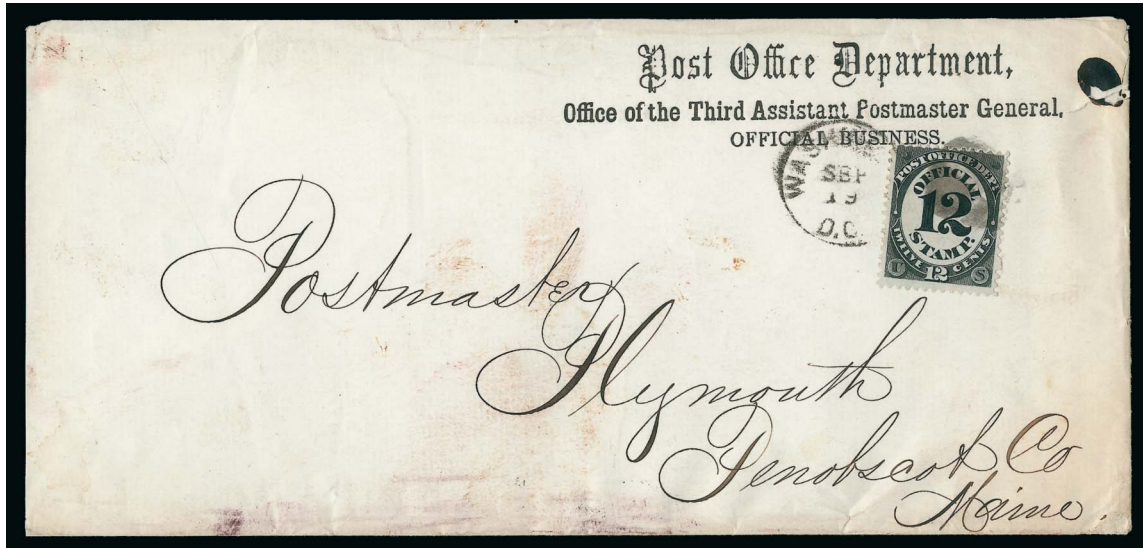 Post Office Department,
Office of the Third Assistant Postmaster General,
OFFICIAL BUSINESS.
SEP
19
D.C.
POST OFFICE DEPT.
OFFICIAL
12
STAMP.
TWELVE 12 CENTS
U S
Postmaster
Plymouth
Penobscot Co
Maine